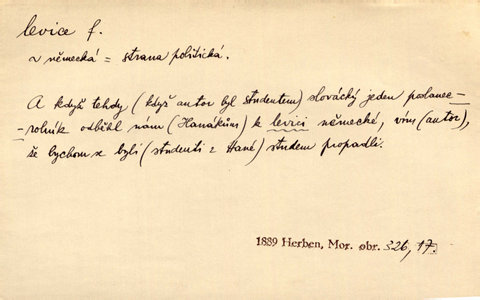 levice f.
~ německá = strana politická.
A když tehdy (když autor byl studentem) slovácký jeden poslanec-
-rolník odběhl nám (Hanákům) k levici německé, vím (autor),
že bychom se byli (studenti z Hané) studem propadli.
1889 Herben, Mor. obr. 326, 17.